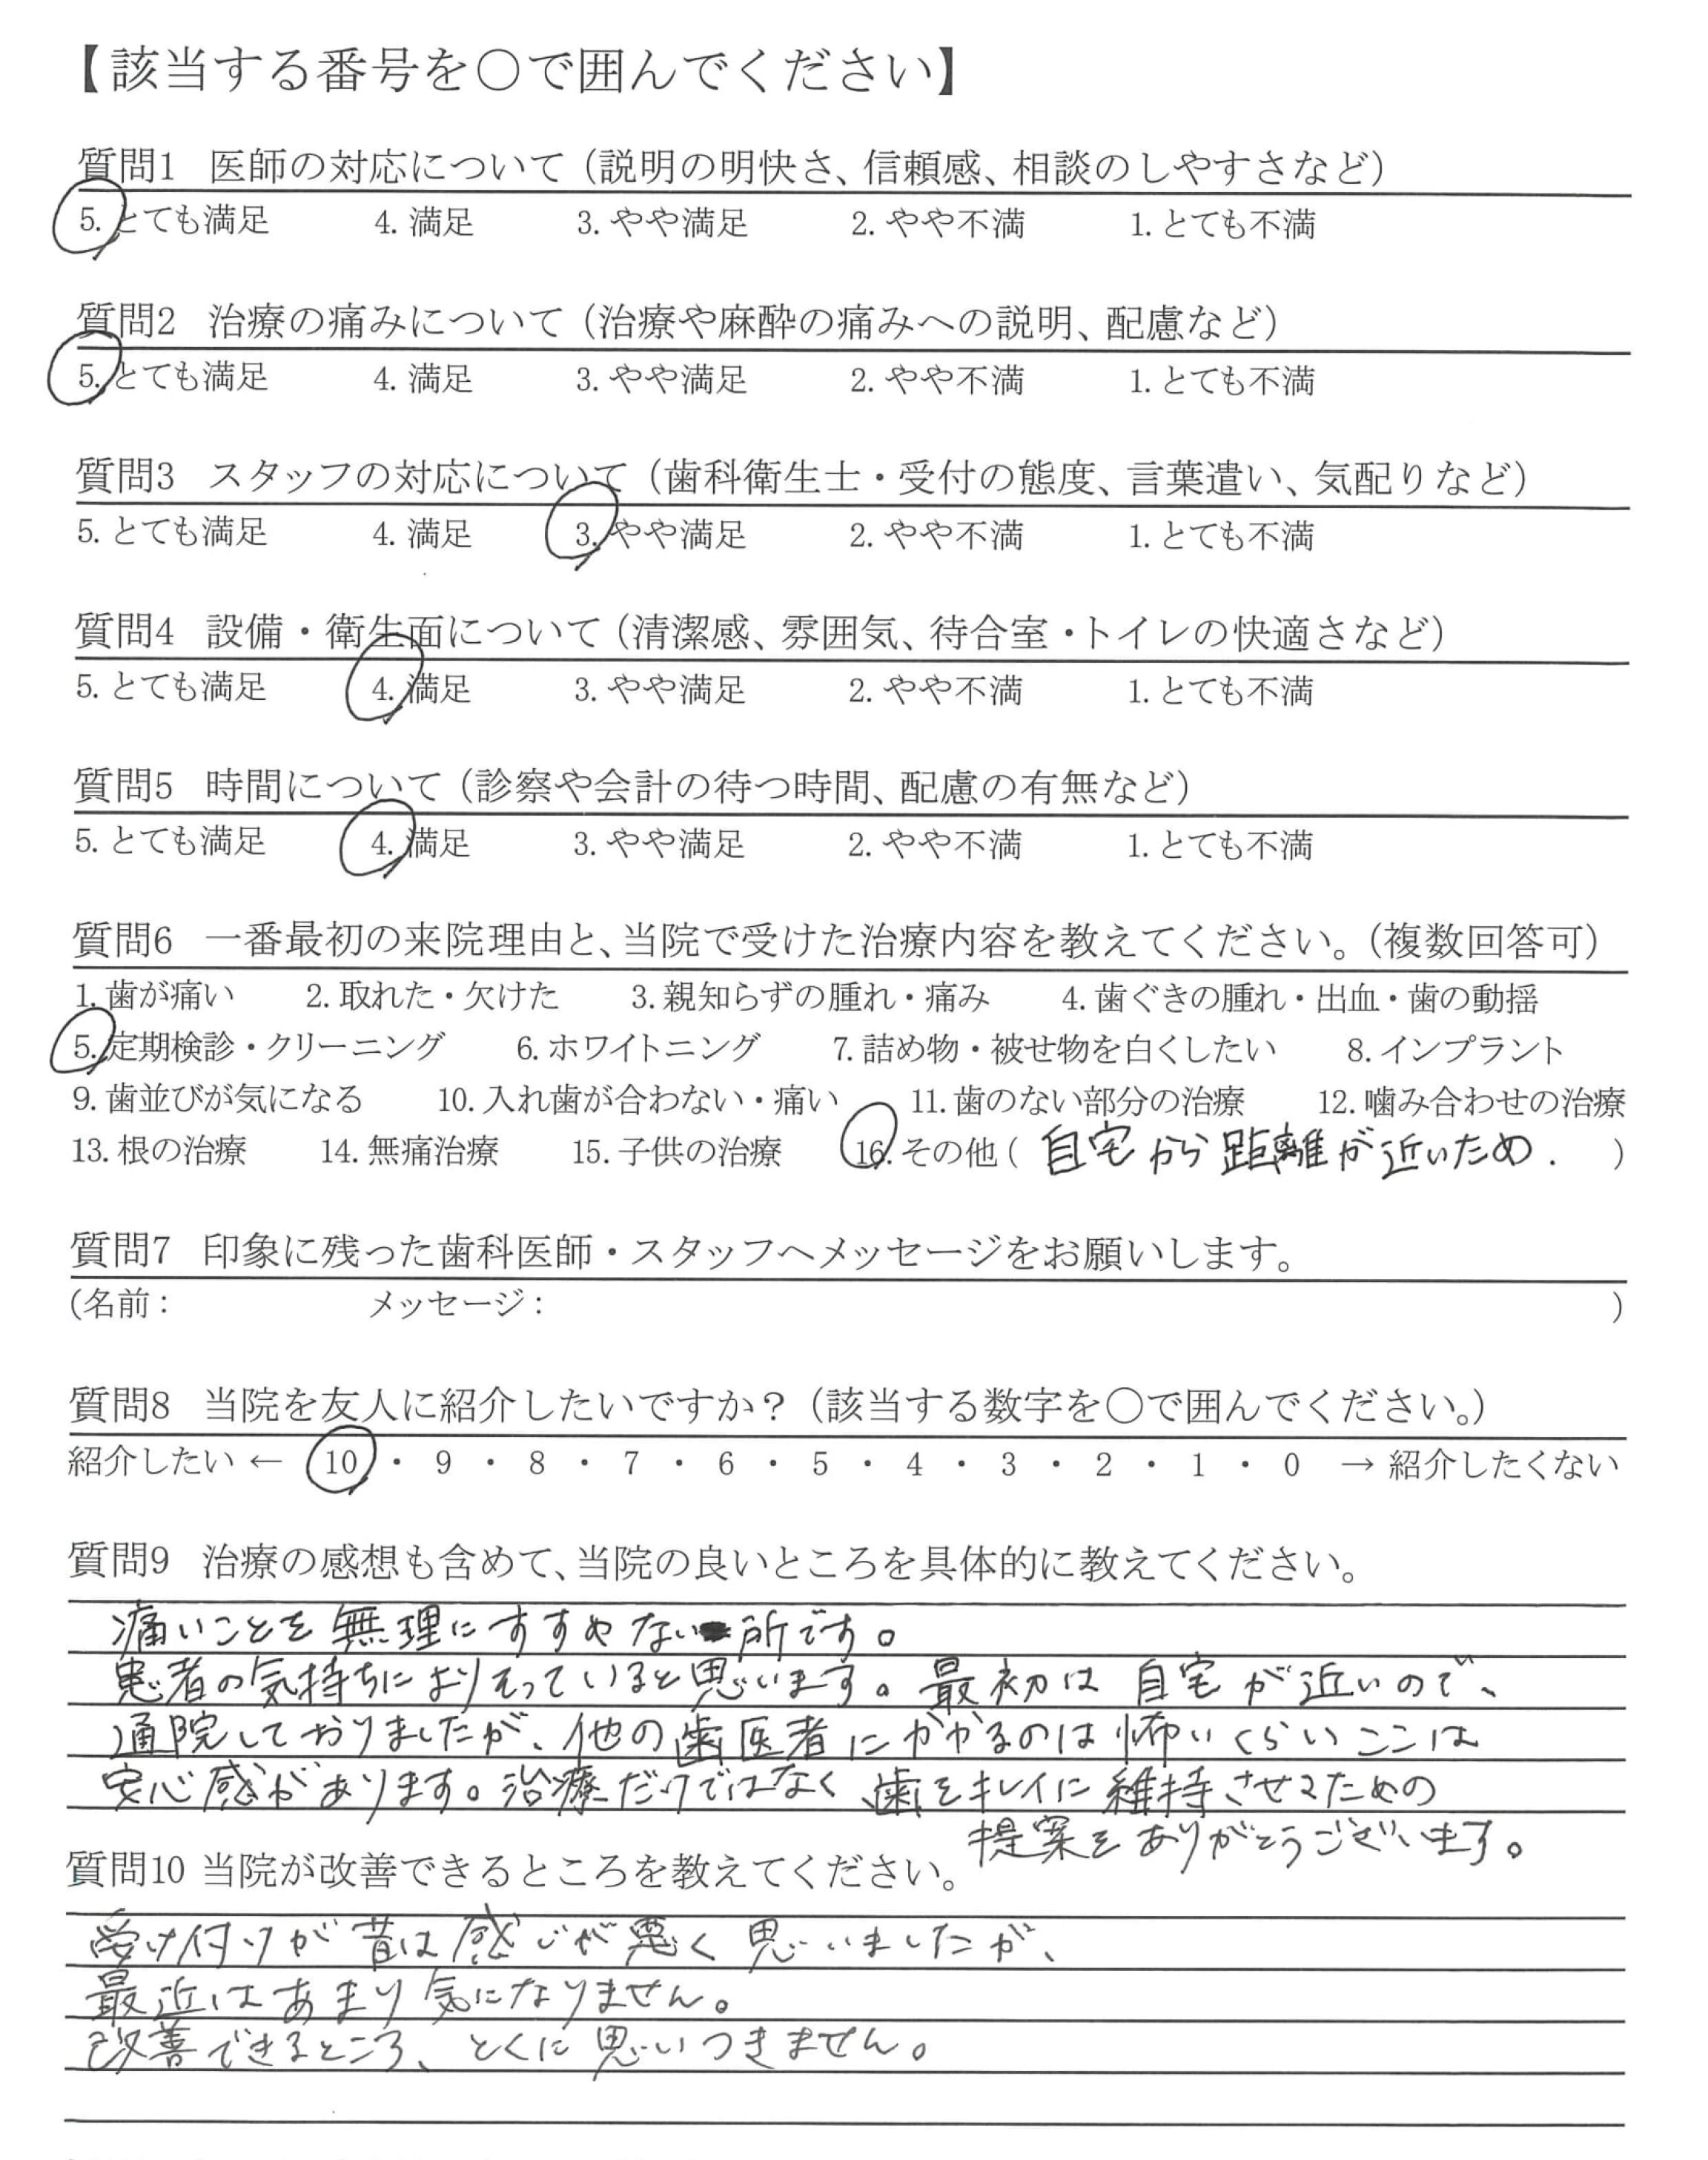 【該当する番号を○で囲んでください】
質問1 医師の対応について（説明の明快さ、信頼感、相談のしやすさなど）
5. とても満足 4. 満足 3. やや満足 2. やや不満 1. とても不満
質問2 治療の痛みについて（治療や麻酔の痛みへの説明、配慮など）
5. とても満足 4. 満足 3. やや満足 2. やや不満 1. とても不満
質問3 スタッフの対応について（歯科衛生士・受付の態度、言葉遣い、気配りなど）
5. とても満足 4. 満足 3. やや満足 2. やや不満 1. とても不満
質問4 設備・衛生面について（清潔感、雰囲気、待合室・トイレの快適さなど）
5. とても満足 4. 満足 3. やや満足 2. やや不満 1. とても不満
質問5 時間について（診察や会計の待つ時間、配慮の有無など）
5. とても満足 4. 満足 3. やや満足 2. やや不満 1. とても不満
質問6 一番最初の来院理由と、当院で受けた治療内容を教えてください。（複数回答可）
1. 歯が痛い 2. 取れた・欠けた 3. 親知らずの腫れ・痛み 4. 歯ぐきの腫れ・出血・歯の動揺
5. 定期検診・クリーニング 6. ホワイトニング 7. 詰め物・被せ物を白くしたい 8. インプラント
9. 歯並びが気になる 10. 入れ歯が合わない・痛い 11. 歯のない部分の治療 12. 噛み合わせの治療
13. 根の治療 14. 無痛治療 15. 子供の治療 16. その他（自宅から距離が近いため. ）
質問7 印象に残った歯科医師・スタッフへメッセージをお願いします。
（名前： メッセージ： ）
質問8 当院を友人に紹介したいですか？（該当する数字を○で囲んでください。）
紹介したい ← 10 ・ 9 ・ 8 ・ 7 ・ 6 ・ 5 ・ 4 ・ 3 ・ 2 ・ 1 ・ 0 → 紹介したくない
質問9 治療の感想も含めて、当院の良いところを具体的に教えてください。
痛いことを無理にすすめない所です。
患者の気持ちによりそっていると思います。最初は自宅が近いので、
通院しておりましたが、他の歯医者にかかるのは怖いくらいここは
安心感があります。治療だけではなく、歯をキレイに維持させるための
提案をありがとうございます。
質問10 当院が改善できるところを教えてください。
受け付けが昔は感じが悪く思いましたが、
最近はあまり気になりません。
改善できるところ、とくに思いつきません。